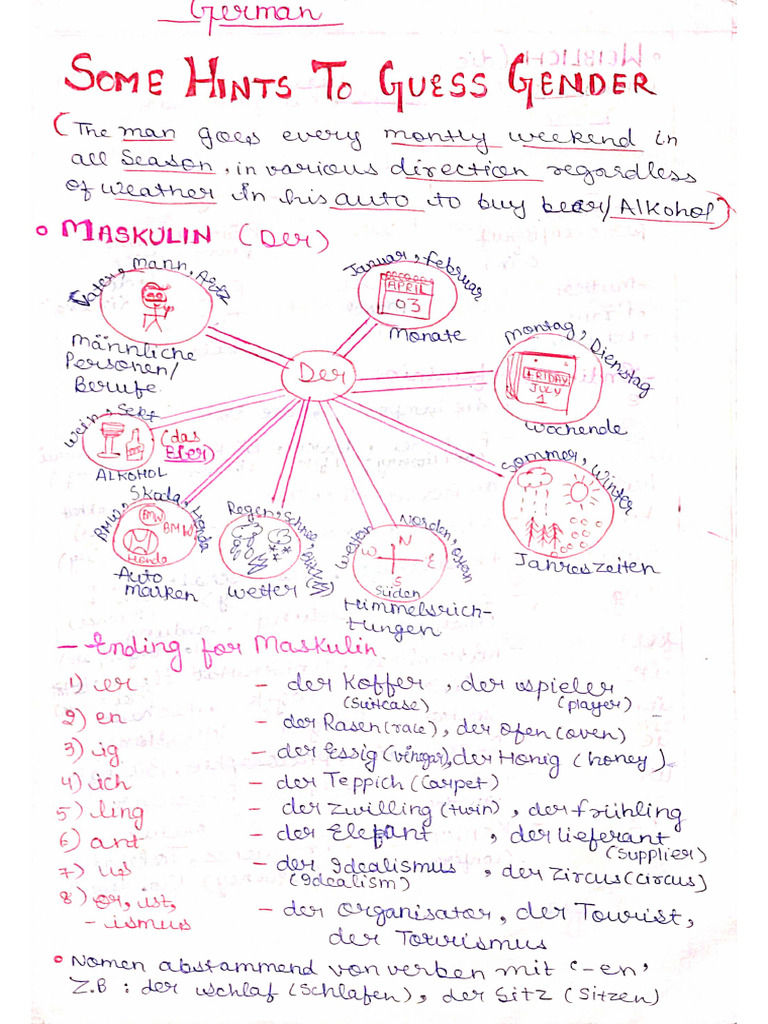 German
SOME HINTS TO GUESS GENDER
(The man goes every montly weekend in
all season, in various direction regardless
of weather in his auto to buy bear/Alkohol)
• MASKULIN (Der)
Vater, Mann, Artz
männliche
Personen/
Berufe
Januar, Februar
APRIL
03
Monate
Montag, Dienstag
FRIDAY
JULY
1
Wochende
Der
Wein, Sekt
(das
Bier)
ALKOHOL
Sommer, Winter
Jahreszeiten
BMW, Skoda, Honda
BMW
BMW
Honda
Auto
marken
Regen, Schnee, Blitz
Wetter
Westen Norden, Osten
N
W E
S
Süden
Himmelsrich-
tungen
- Ending for Maskulin
1) er - der Koffer, der spieler
(suitcase) (player)
2) en - der Rasen (race), der Ofen (oven)
3) ig - der Essig (vingar), der Honig (honey)
4) ich - der Teppich (Carpet)
5) ling - der Zwilling (twin), der frühling
6) ant - der Elefant, der lieferant
(Supplier)
7) us - der Idealismus, der Zircus (circus)
(Idealism)
8) or, ist, - der Organisator, der Tourist,
- ismus der Tourismus
• Nomen abstammend von verben mit '-en'
Z.B : der schlaf (Schlafen), der Sitz (Sitzen)